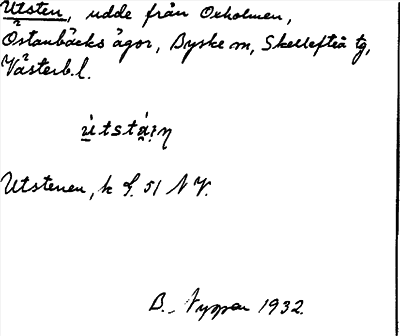 Utsten, udde från Oxholmen,
Östanbäcks ägor, Byske sn, Skellefteå tg,
Västerb. l.
Utstenen, k G. 51 N V.
B. Nyman 1932.